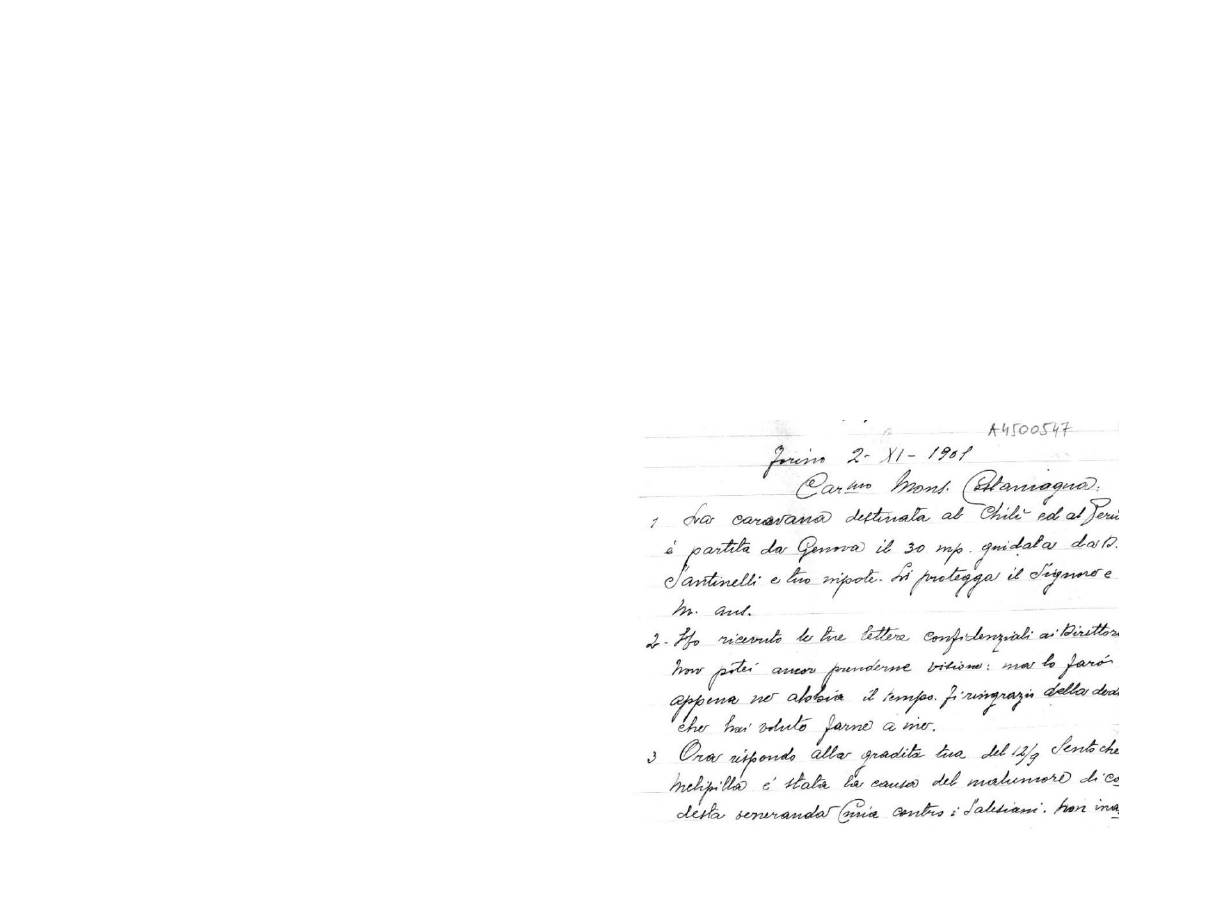 A4500547
Torino 2- XI - 1901
Car.mo Mons. Costamagna:
1 La caravana destinata al Chilì ed al Perù
è partita da Genova il 30 mp. guidata da D.
Santinelli e tuo nipote. Li protegga il Signore e
M. aus.
2- Ho ricevuto le tue lettere confidenziali ai Direttori
Non potei ancor prenderne visione: ma lo farò
appena ne abbia il tempo. Ti ringrazio della
che hai voluto farne a me.
3 Ora rispondo alla gradita tua del 12/9 Sento che
Melipilla è stata la causa del malumore di co
desta veneranda Curia contro i Salesiani. Non